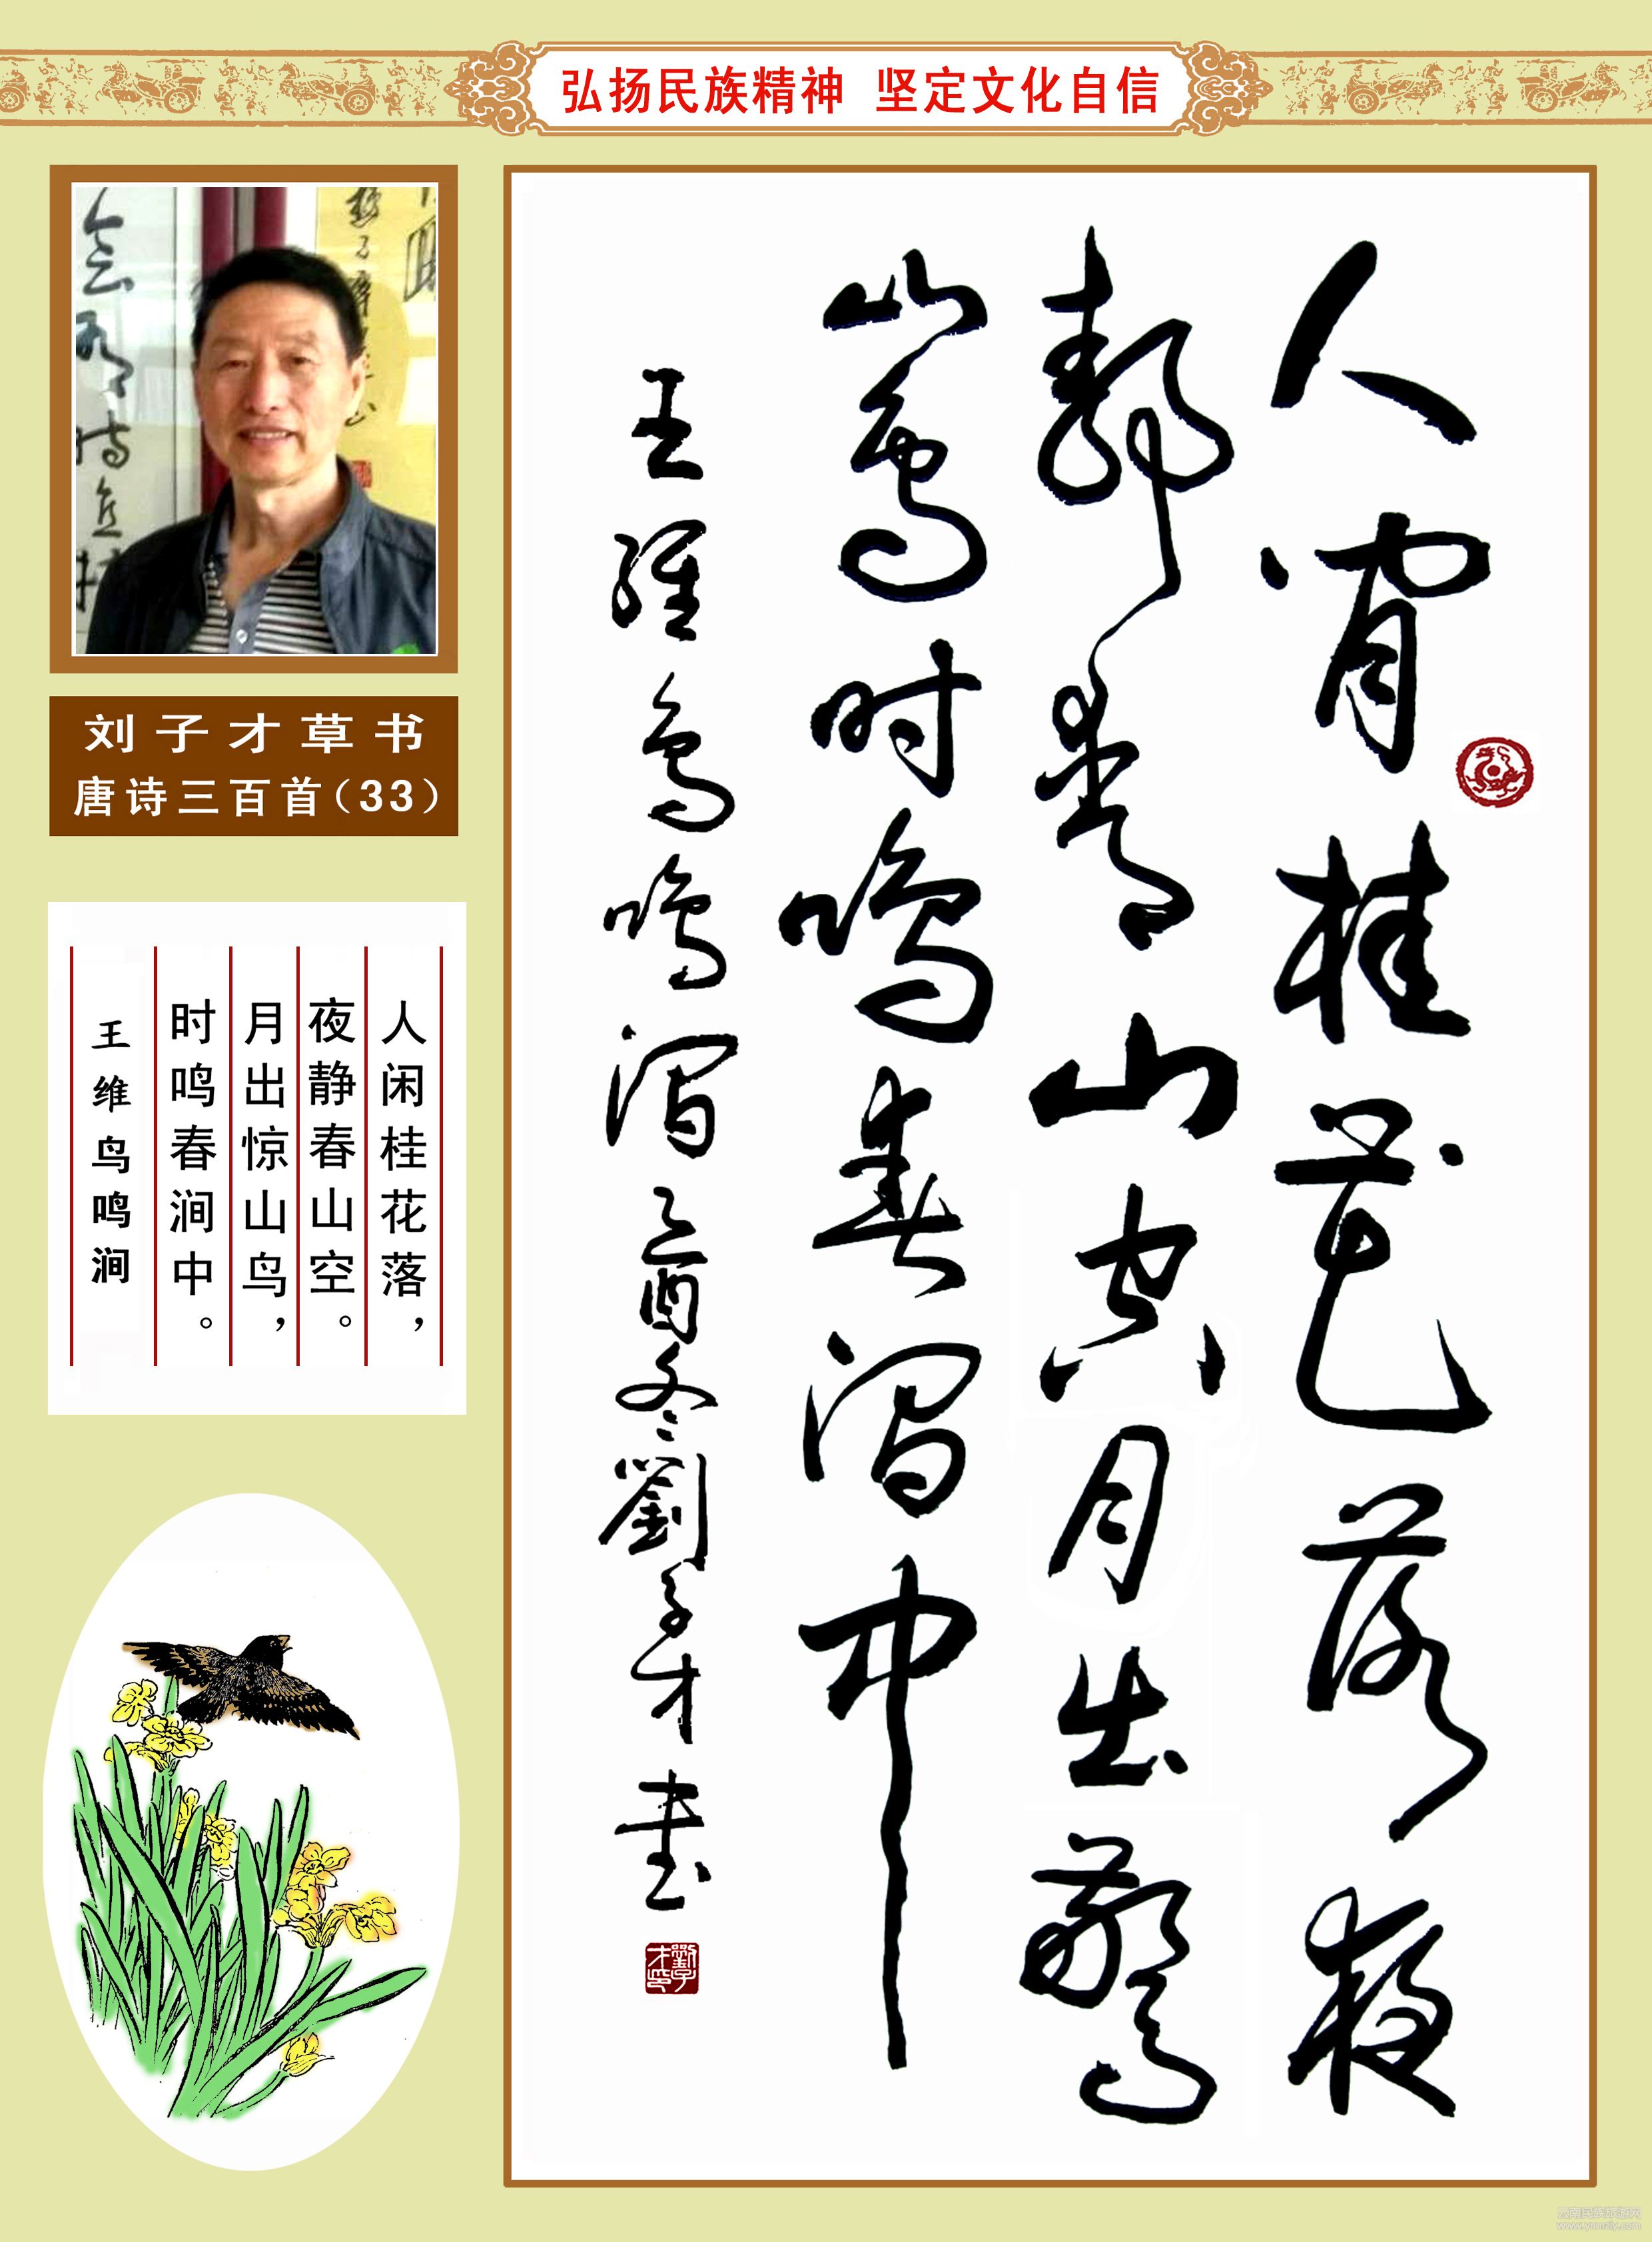 弘扬民族精神 坚定文化自信
刘子才草书
唐诗三百首（33）
人闲桂花落，
夜静春山空。
月出惊山鸟，
时鸣春涧中。
王维鸟鸣涧
人閒桂花落夜
静春山空月出驚
山鸟时鸣春涧中
王维鸟鸣涧 乙酉冬劉子才书
劉子才印